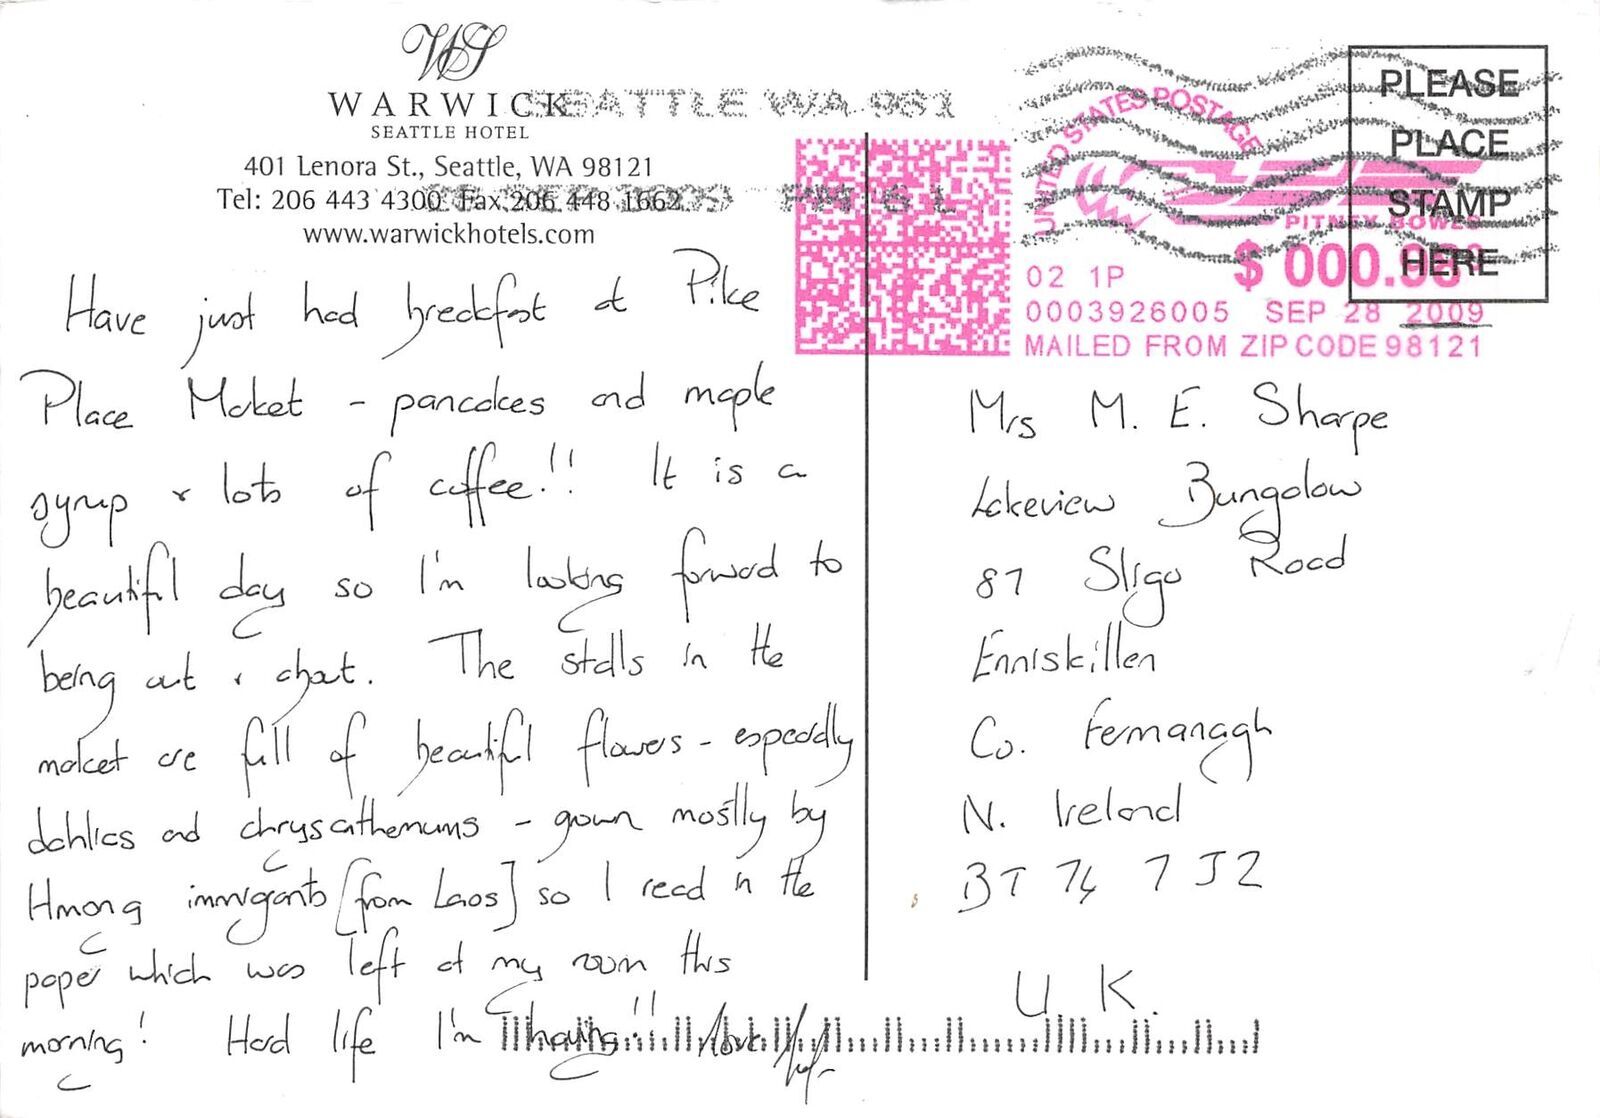 WS
WARWICK
SEATTLE HOTEL
401 Lenora St., Seattle, WA 98121
Tel: 206 443 4300 Fax 206 448 1662
www.warwickhotels.com
SEATTLE WA 981
Have just had breakfast at Pike
Place Market - pancakes and maple
syrup & lots of coffee!! It is a
beautiful day so I'm looking forward to
being out & about. The stalls in the
market are full of beautiful flowers - especially
dahlias and chrysanthemums - grown mostly by
Hmong immigrants [from Laos] so I read in the
paper which was left at my room this
morning! Hard life I'm having!! love
UNITED STATES POSTAGE
PITNEY BOWES
02 1P
$ 000.
0003926005 SEP 28 2009
MAILED FROM ZIP CODE 98121
PLEASE
PLACE
STAMP
HERE
Mrs M. E. Sharpe
Lakeview Bungalow
87 Sligo Road
Enniskillen
Co. Fermanagh
N. Ireland
BT 74 7JZ
U K.